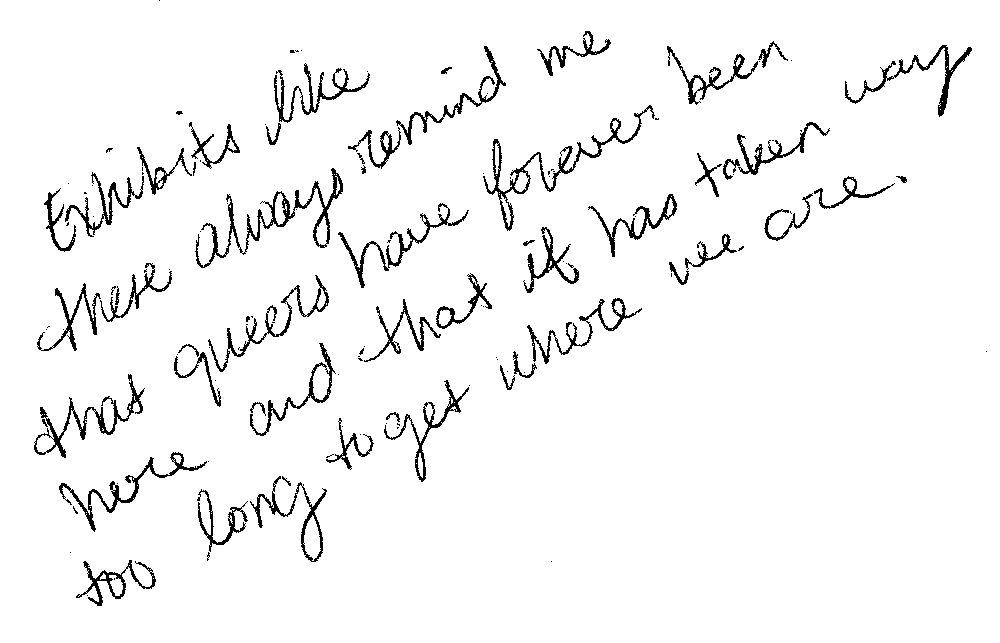 Exhibits like
these always remind me
that queers have forever been
here and that it has taken way
too long to get where we are.